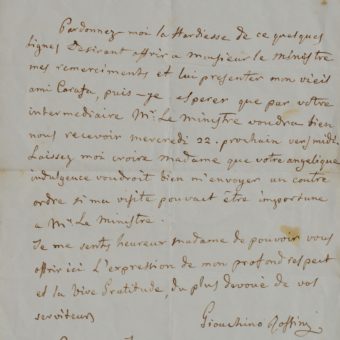 Pardonnez moi la Hardiesse de ce quelques
lignes desirant offrir a monsieur le ministre
mes remerciments et lui presenter mon vieil
ami Carafa, puis-je esperer que par votre
intermediaire Mr. Le Ministre voudra bien
nous recevoir mercredi 22. prochain vers midi.
Laissez moi croire Madame que votre angelique
indulgence voudroit bien m'envoyer un contre
ordre si ma visite pouvait être importune
a Mr. Le Ministre.
Je me sents heureur madame de pouvoir vous
offrir ici L'expression de mon profond respect
et la vive Gratitude, du plus devoué de vos
serviteurs
Giouchino Rossini